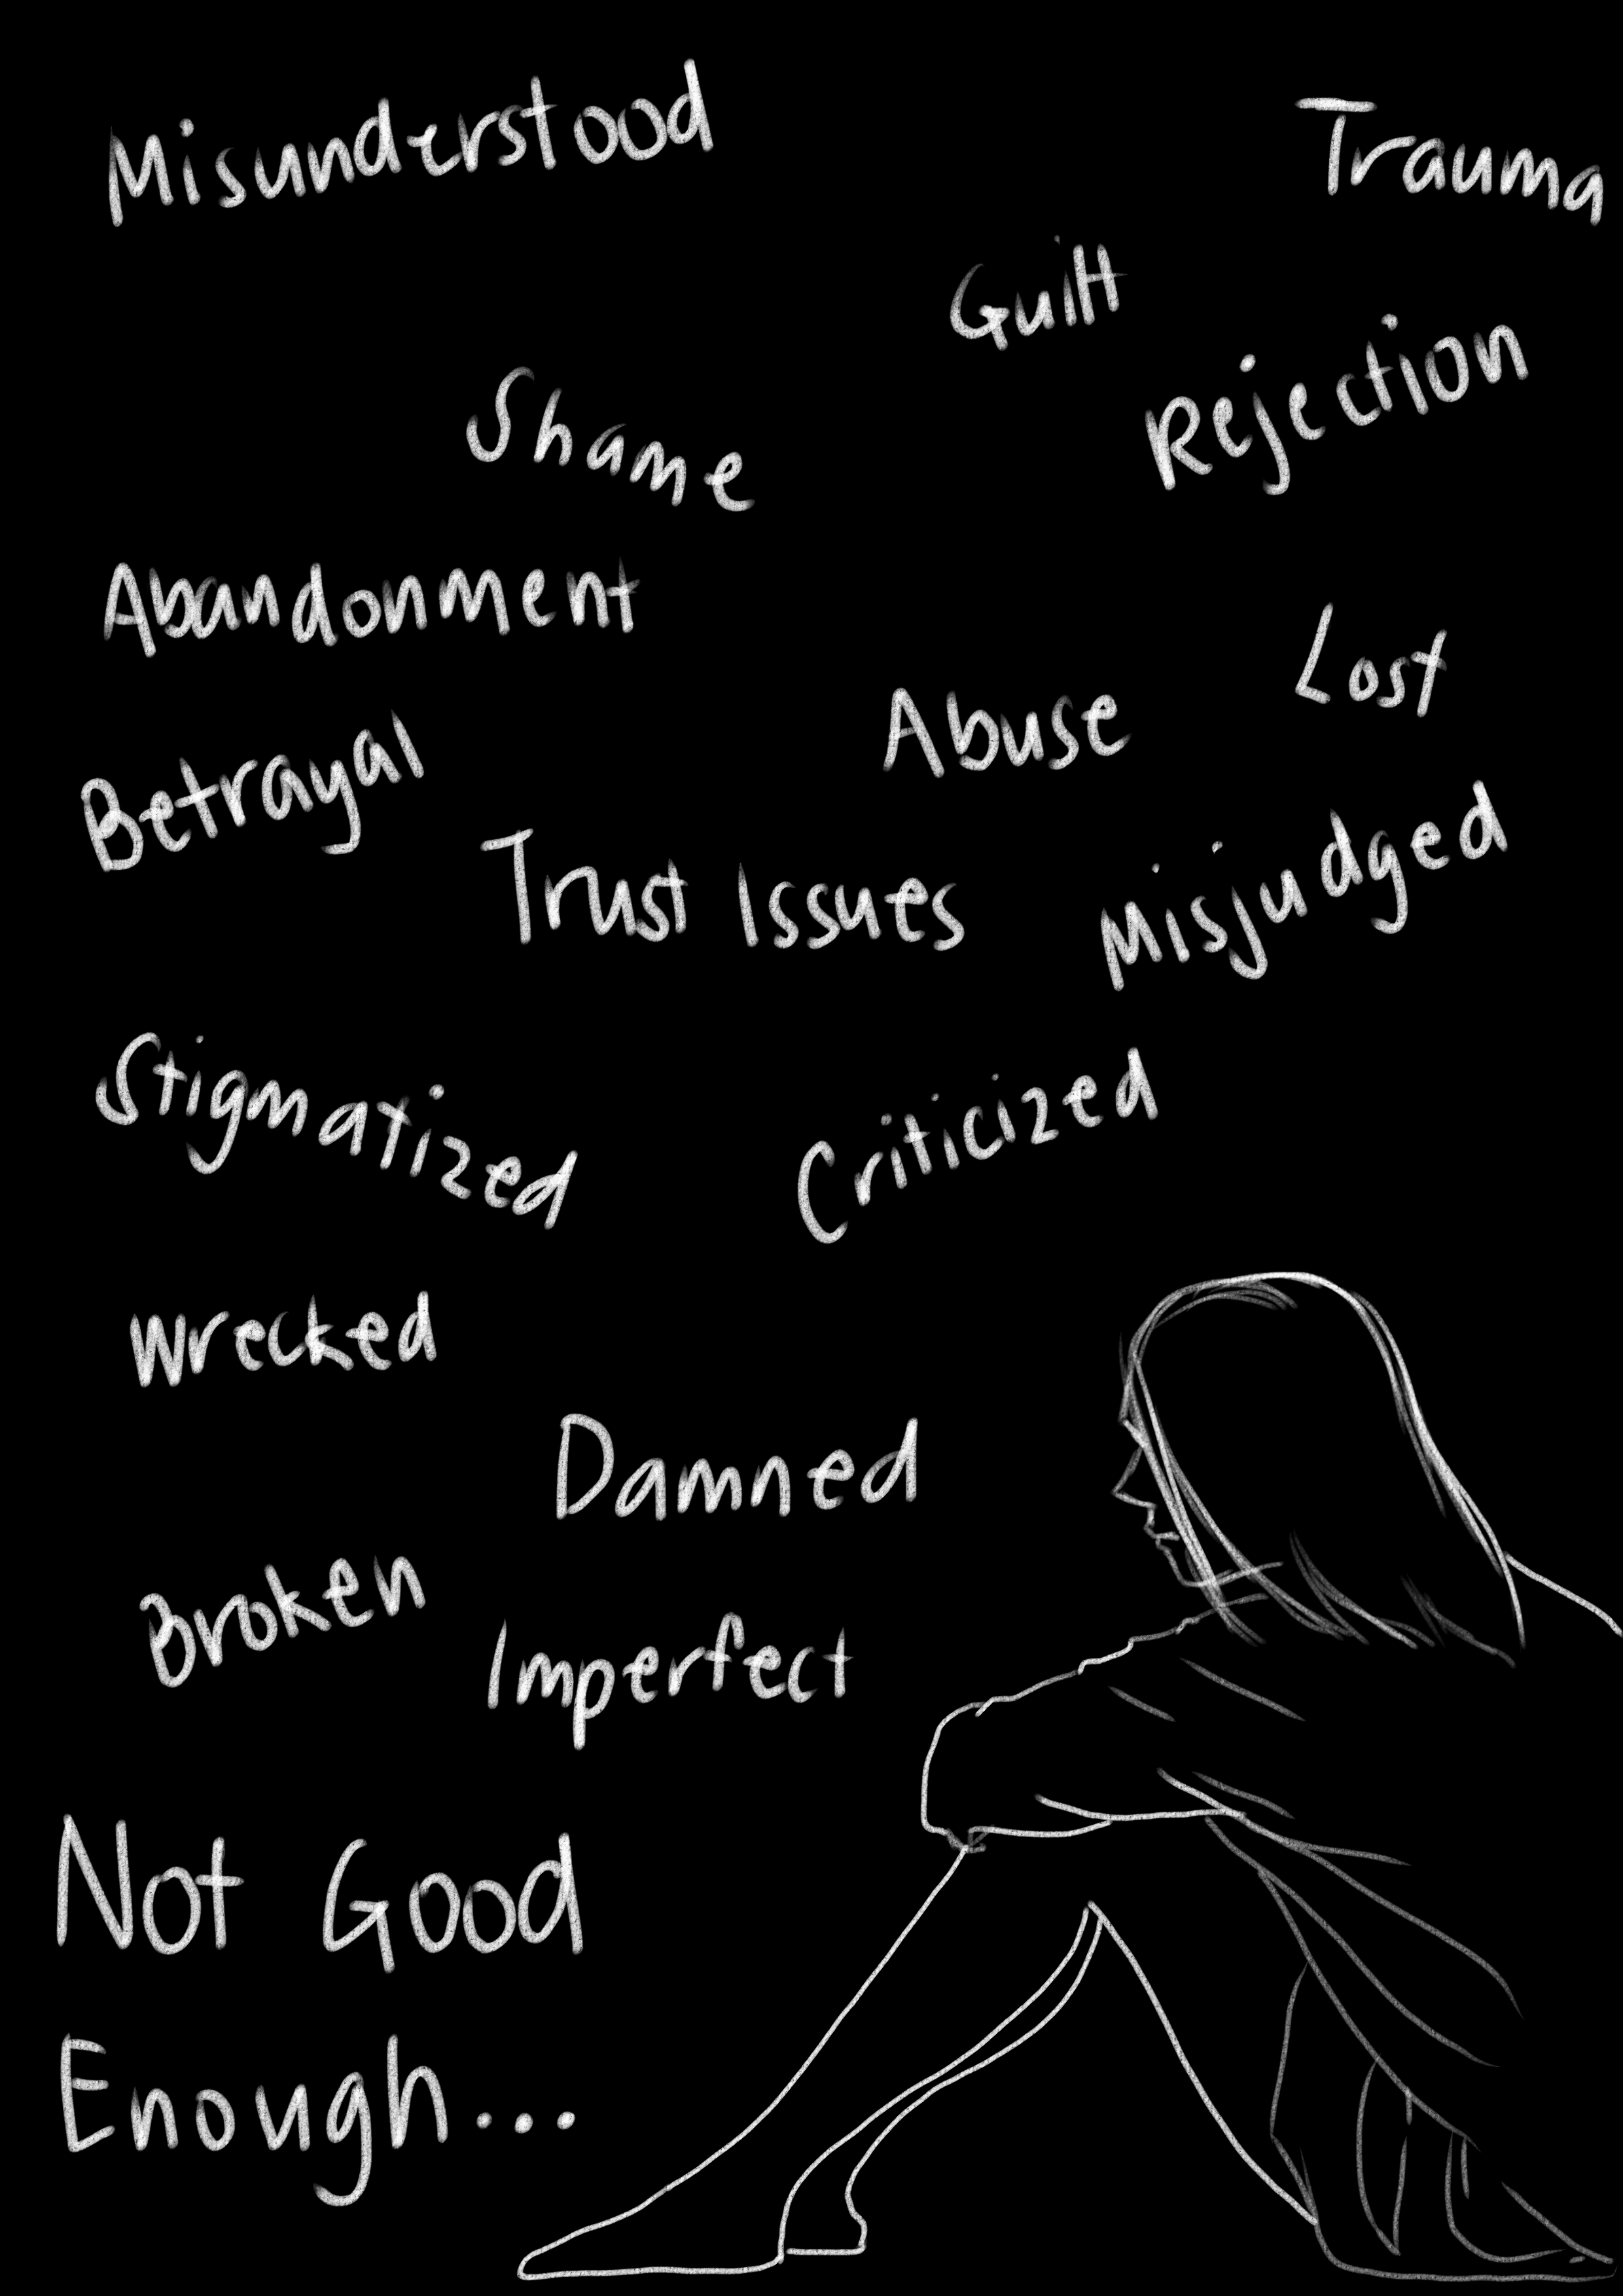 Misunderstood
Trauma
Guilt
Shame
Rejection
Abandonment
Lost
Abuse
Betrayal
Trust Issues
Misjudged
Stigmatized
Criticized
Wrecked
Damned
Broken
Imperfect
Not Good
Enough...